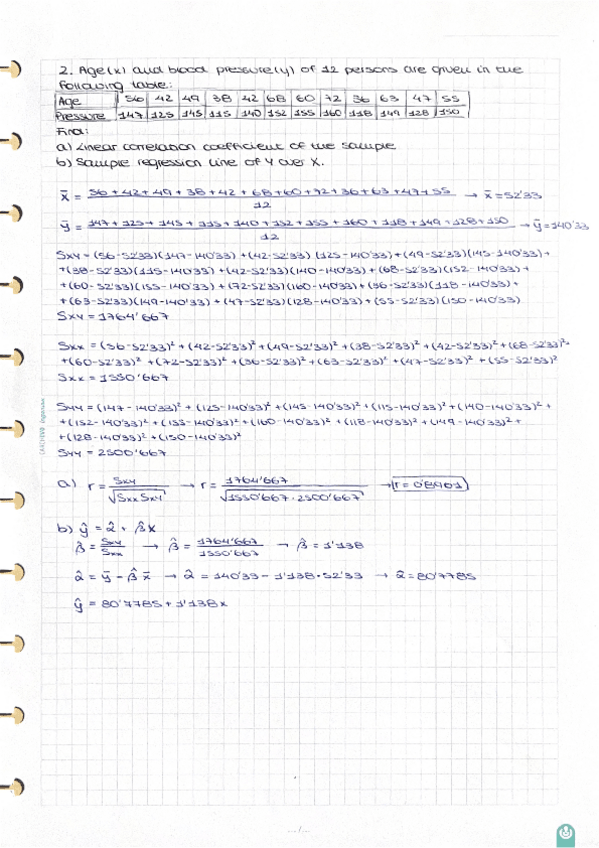 2. Age(x) and blood pressure(y) of 12 persons are given in the
following table:
Age 56 42 49 38 42 68 60 72 36 63 47 55
Pressure 147 125 145 115 140 152 155 160 118 149 128 150
Find:
a) Linear correlation coefficient of the sample
b) Sample regression line of Y over X.
x̄ = 56+42+49+38+42+68+60+72+36+63+47+55 / 12 → x̄ = 52'33
ȳ = 147+125+145+115+140+152+155+160+118+149+128+150 / 12 → ȳ = 140'33
Sxy = (56-52'33)(147-140'33)+(42-52'33)(125-140'33)+(49-52'33)(145-140'33)+
+(38-52'33)(115-140'33)+(42-52'33)(140-140'33)+(68-52'33)(152-140'33)+
+(60-52'33)(155-140'33)+(72-52'33)(160-140'33)+(36-52'33)(118-140'33)+
+(63-52'33)(149-140'33)+(47-52'33)(128-140'33)+(55-52'33)(150-140'33)
Sxy = 1764'667
Sxx = (56-52'33)²+(42-52'33)²+(49-52'33)²+(38-52'33)²+(42-52'33)²+(68-52'33)²+
+(60-52'33)²+(72-52'33)²+(36-52'33)²+(63-52'33)²+(47-52'33)²+(55-52'33)²
Sxx = 1550'667
Syy = (147-140'33)²+(125-140'33)²+(145-140'33)²+(115-140'33)²+(140-140'33)²+
+(152-140'33)²+(155-140'33)²+(160-140'33)²+(118-140'33)²+(149-140'33)²+
+(128-140'33)²+(150-140'33)²
Syy = 2500'667
a) r = Sxy / √Sxx Syy → r = 1764'667 / √1550'667·2500'667 → r = 0'8961
b) ŷ = α̂ + β̂x
β̂ = Sxy / Sxx → β̂ = 1764'667 / 1550'667 → β̂ = 1'138
α̂ = ȳ - β̂ x̄ → α̂ = 140'33 - 1'138·52'33 → α̂ = 80'7785
ŷ = 80'7785 + 1'138x